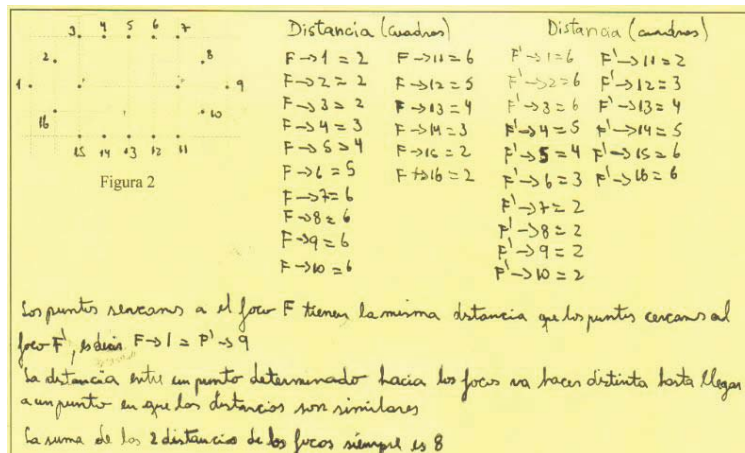 3 4 5 6 7
2 8
1 9
16 10
15 14 13 12 11
Figura 2
Distancia (cuadros)
F→1=2 F→11=6
F→2=2 F→12=5
F→3=2 F→13=4
F→4=3 F→14=3
F→5=4 F→15=2
F→6=5 F→16=2
F→7=6
F→8=6
F→9=6
F→10=6
Distancia (cuadros)
F'→1=6 F'→11=2
F'→2=6 F'→12=3
F'→3=6 F'→13=4
F'→4=5 F'→14=5
F'→5=4 F'→15=6
F'→6=3 F'→16=6
F'→7=2
F'→8=2
F'→9=2
F'→10=2
Los puntos sercanos a el foco F tienen la misma distancia que los puntos cercanos al
foco F', es decir F→1=F'→9
La distancia entre un punto determinado hacia los focos va hacer distinta hasta llegar
a un punto en que las distancias son similares
La suma de las 2 distancias de los focos siempre es 8